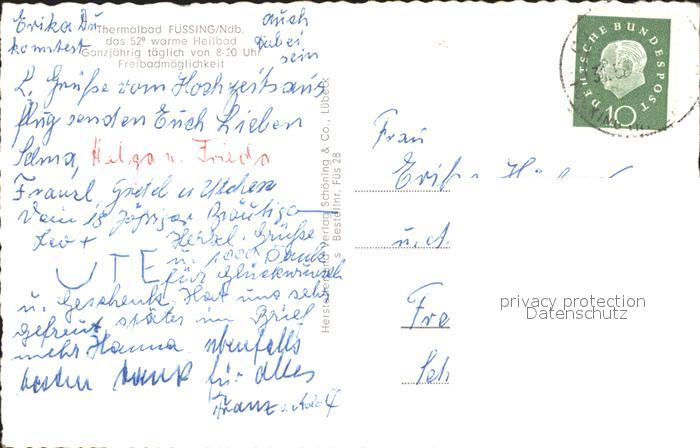 Erika Du auch
konntest dabei
sein
Thermalbad FÜSSING/Ndb.
das 52° warme Heilbad
Ganzjährig täglich von 8-20 Uhr
Freibadmöglichkeit
L. Grüße vom Hochzeitsaus
flug senden Euch Lieben
Selma, Helga u. Frieda
Franzl, Gretel u Utchen
Vom 18 jährigen Bräutigam
Leo + Herzl. Grüße
UTE u. 1000 Dank
für Glückwunsch
u. Geschenk. Hat uns sehr
gefreut, später im Brief
mehr Hanna. ebenfalls
besten Dank für alles
Franz u. Adolf
Schöning & Co., Lübeck
Bestellnr. Füs 28
DEUTSCHE BUNDESPOST
10
Frau
u.
privacy protection
Datenschutz